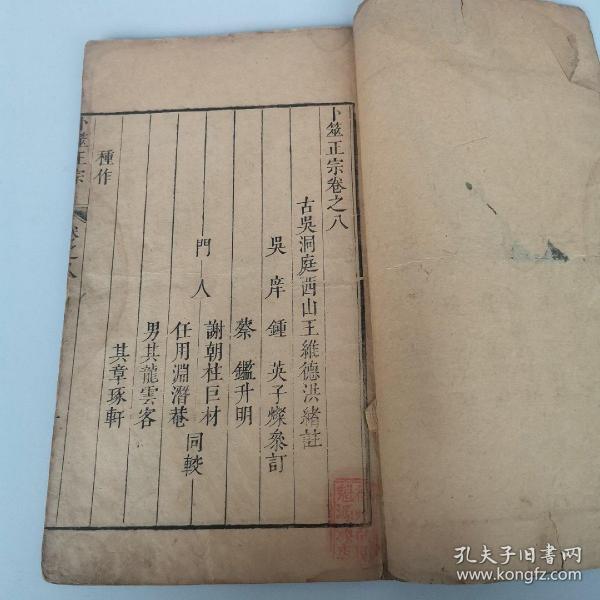 卜筮正宗卷之八
古吳洞庭西山王維德洪緒註
吳庠鍾英子燦叅訂
蔡鑑升明
謝朝柱巨材
門人
任用淵潛菴
同較
男其龍雲客
其章琢軒
種作
卜筮正宗
卷之八
孔夫子旧书网
www.kongfz.com